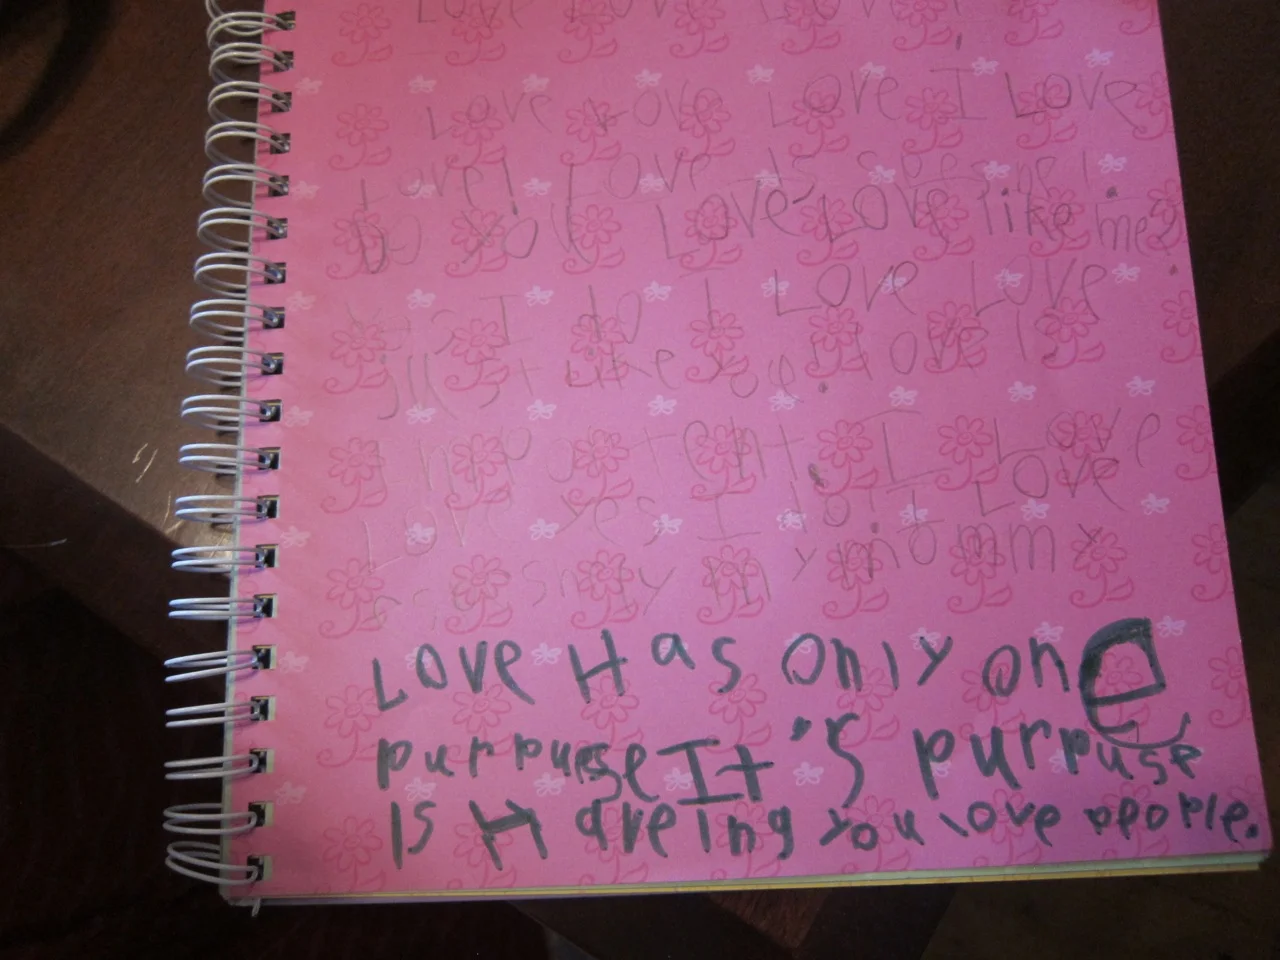 Love Love Love
Love Love Love I Love
Love! Love Is
Do you Love Love like me?
I do I Love Love
Like you! Love Is
Important. I Love
Love yes I do! I Love
my mommy
Love Has only one
purpuse It's purpuse
Is Haveing you love people.